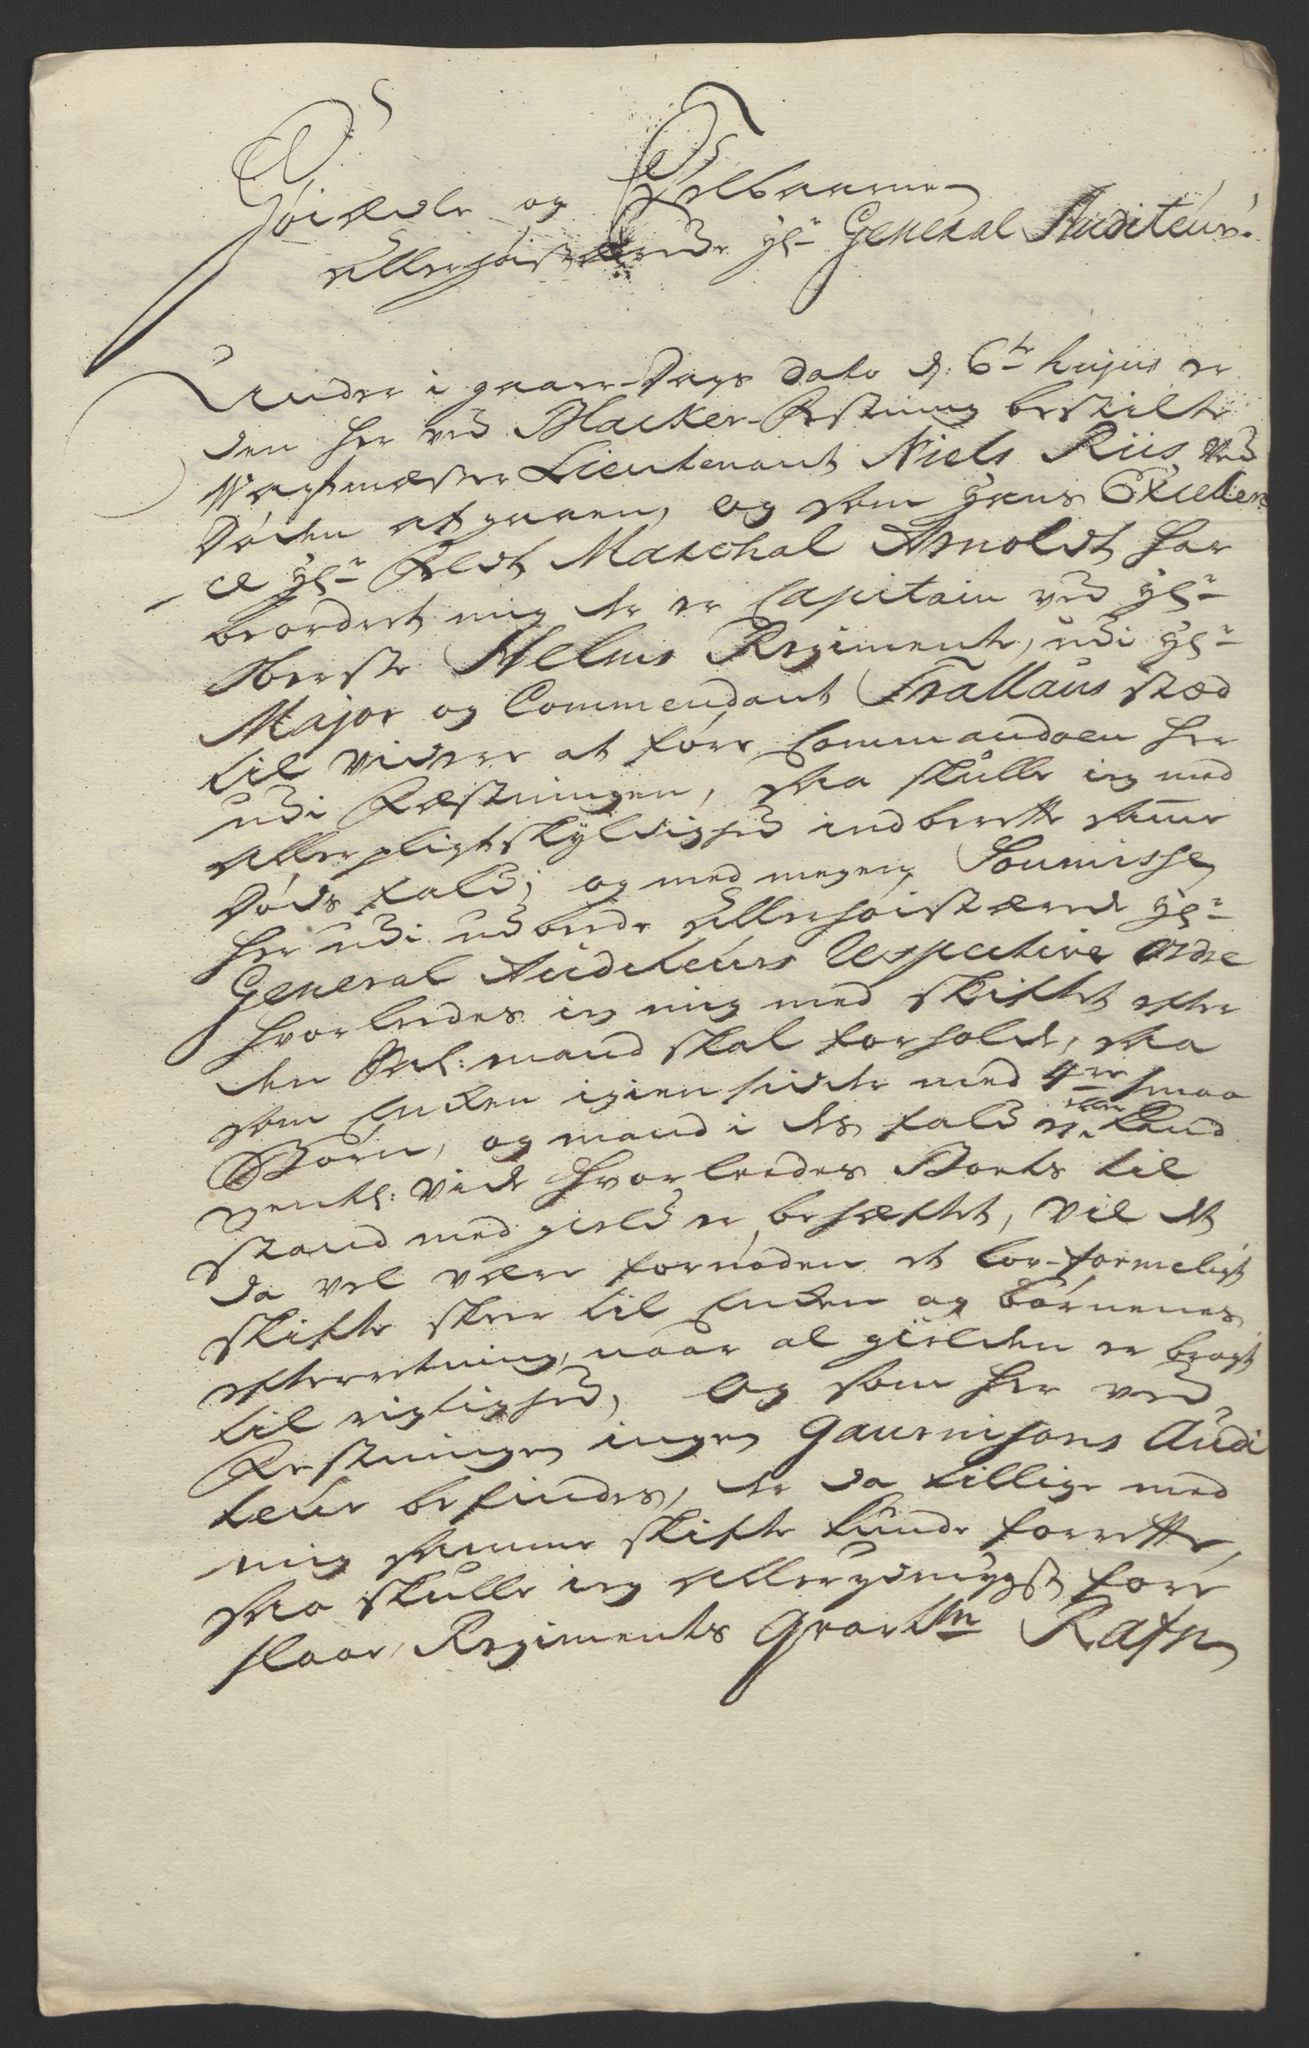 Høiædle og Velbaarne
Allerhøistærede Hr General Auditeur.
Under i gaar-Dags dato d: 6te hujus er
den her ved Blacker-Festning bestilte
Wagtmæster Lieutenant Niels Riis ved
Døden afgaaen, og som Hans Excellen
ce Hr Feldt Marchal Arnoldt har
beordret mig der er Capitain ved Hr
Oberste Helms Regimente, udi Hr
Major og Commendant Frallaus stæd
til videre at føre Commandoen her
udi Fæstningen, saa skulle ieg med
aller pligtskyldighed indberette samme
Døds fald; og med megen Soumisse
her udi udbede Allerhøistærede Hr
General Auditeurs respective ordre
hvorledes ieg mig med skiftet efter
den Sal: mand skal forholde, saa
som Enken igien sidder med 4re smaa
Børn, og mand i des fald ei kand
egentl: vide hvorledes Boets til
stand med gield er behæftet, vil det
da vel være fornøden et lov-formeligt
skifte skeer til Enken og børnenes
efterretning, naar al gielden er bragt
til rigtighed, og som her ved
Festningen ingen Gaurnisons Audi
teur befindes, der da tillige med
mig samme skifte kunde forrette,
saa skulle ieg allerydmygst fore
slaae, Regiments Qvartm Rafn